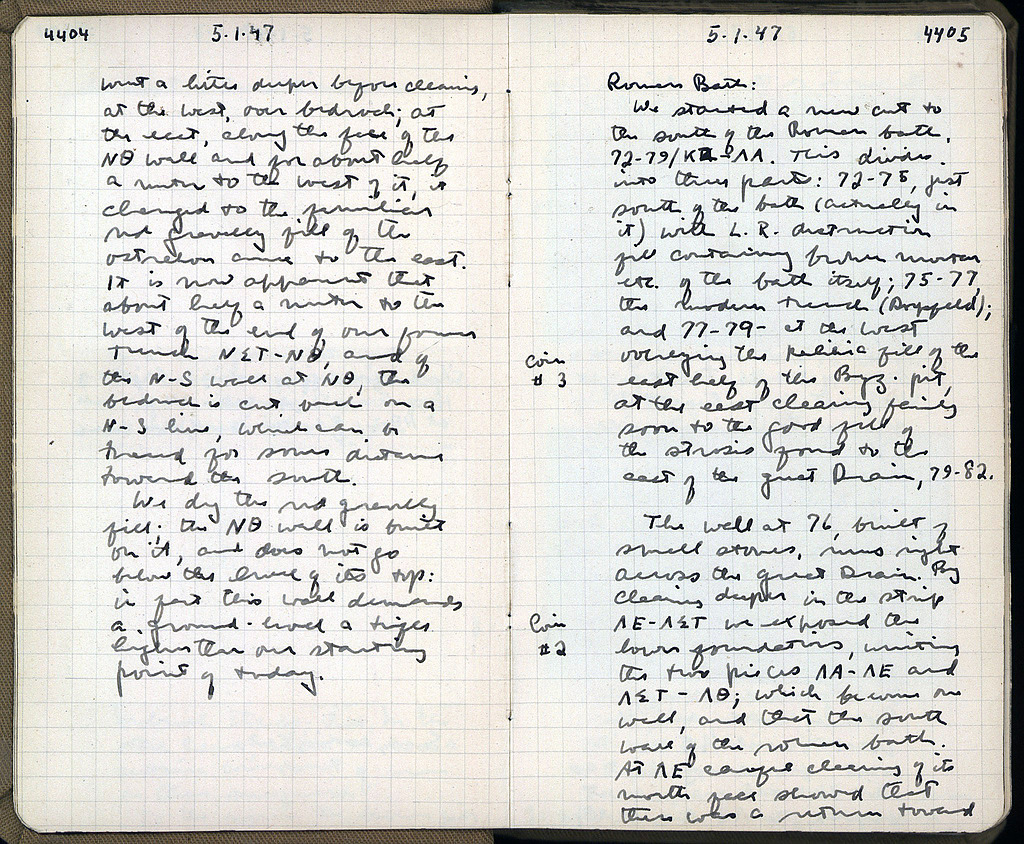 4404
5·1·47
went a little deeper before clearing,
at the west, over bedrock; at
the east, along the face of the
ΝΘ wall and for about half
a meter to the west of it, it
changed to the familiar
red gravelly fill of the
ostrakon area to the east.
It is now apparent that
about half a meter to the
west of the end of our former
Trench ΝΣΤ-ΝΘ, and of
the N-S wall at ΝΘ, the
bedrock is cut back on a
N-S line, which can be
traced for some distance
toward the south.
We dug the red gravelly
fill; the ΝΘ wall is built
on it, and does not go
below the level of its top:
in fact this wall demands
a ground-level a trifle
higher than our starting
point of today.
5·1·47
4405
Roman Bath:
We started a new cut to
the south of the Roman bath,
72-79/ΚΖ-ΛΑ. This divides
into three parts: 72-75, just
south of the bath (actually in
it) with L.R. destruction
fill containing broken mortar
etc. of the bath itself; 75-77,
the modern trench (Dörpfeld);
and 77-79 - at the west
Coin
#3
overlying the fill of the
east half of the Byz. pit,
at the east clearing fairly
soon to the good fill of
the strosis found to the
east of the great Drain, 79-82.
The wall at 76, built of
small stones, runs right
across the great Drain. By
clearing deeper in the strip
Coin
#2
ΛΕ-ΛΣΤ we exposed the
lower foundations, uniting
the two pieces ΛΑ-ΛΕ and
ΛΣΤ-ΛΘ; which become one
wall, and that the south
wall of the roman bath.
At ΛΕ careful clearing of its
north face showed that
there was a return toward